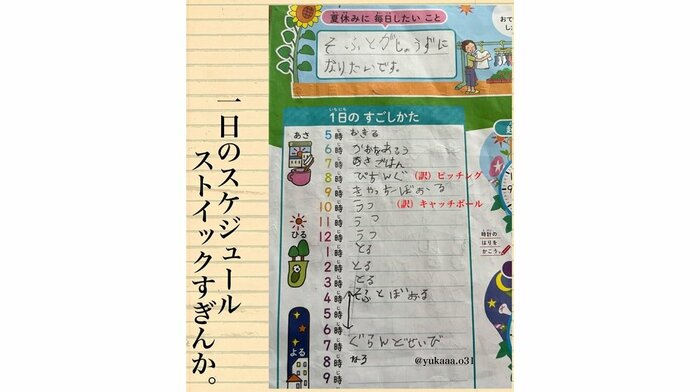 夏休みに 毎日したい こと
そふとがじょうずに
なりたいです。
1日の すごしかた
いちにち
あさ
5時 おきる
6時 かおをあらう
7時 あさごはん
8時 ぴちんぐ (訳) ピッチング
9時 きゃっちぼおる
10時 うつ (訳) キャッチボール
11時 うつ
ひる
12時 うつ
1時 とる
2時 とる
3時 とる
4時 そふとぼおる
5時
6時
7時 ぐらんどせいび
よる
8時 ねる
9時
時計の
はりを
かこう。
@yukaaa.o31
一日のスケジュール
ストイックすぎんか。